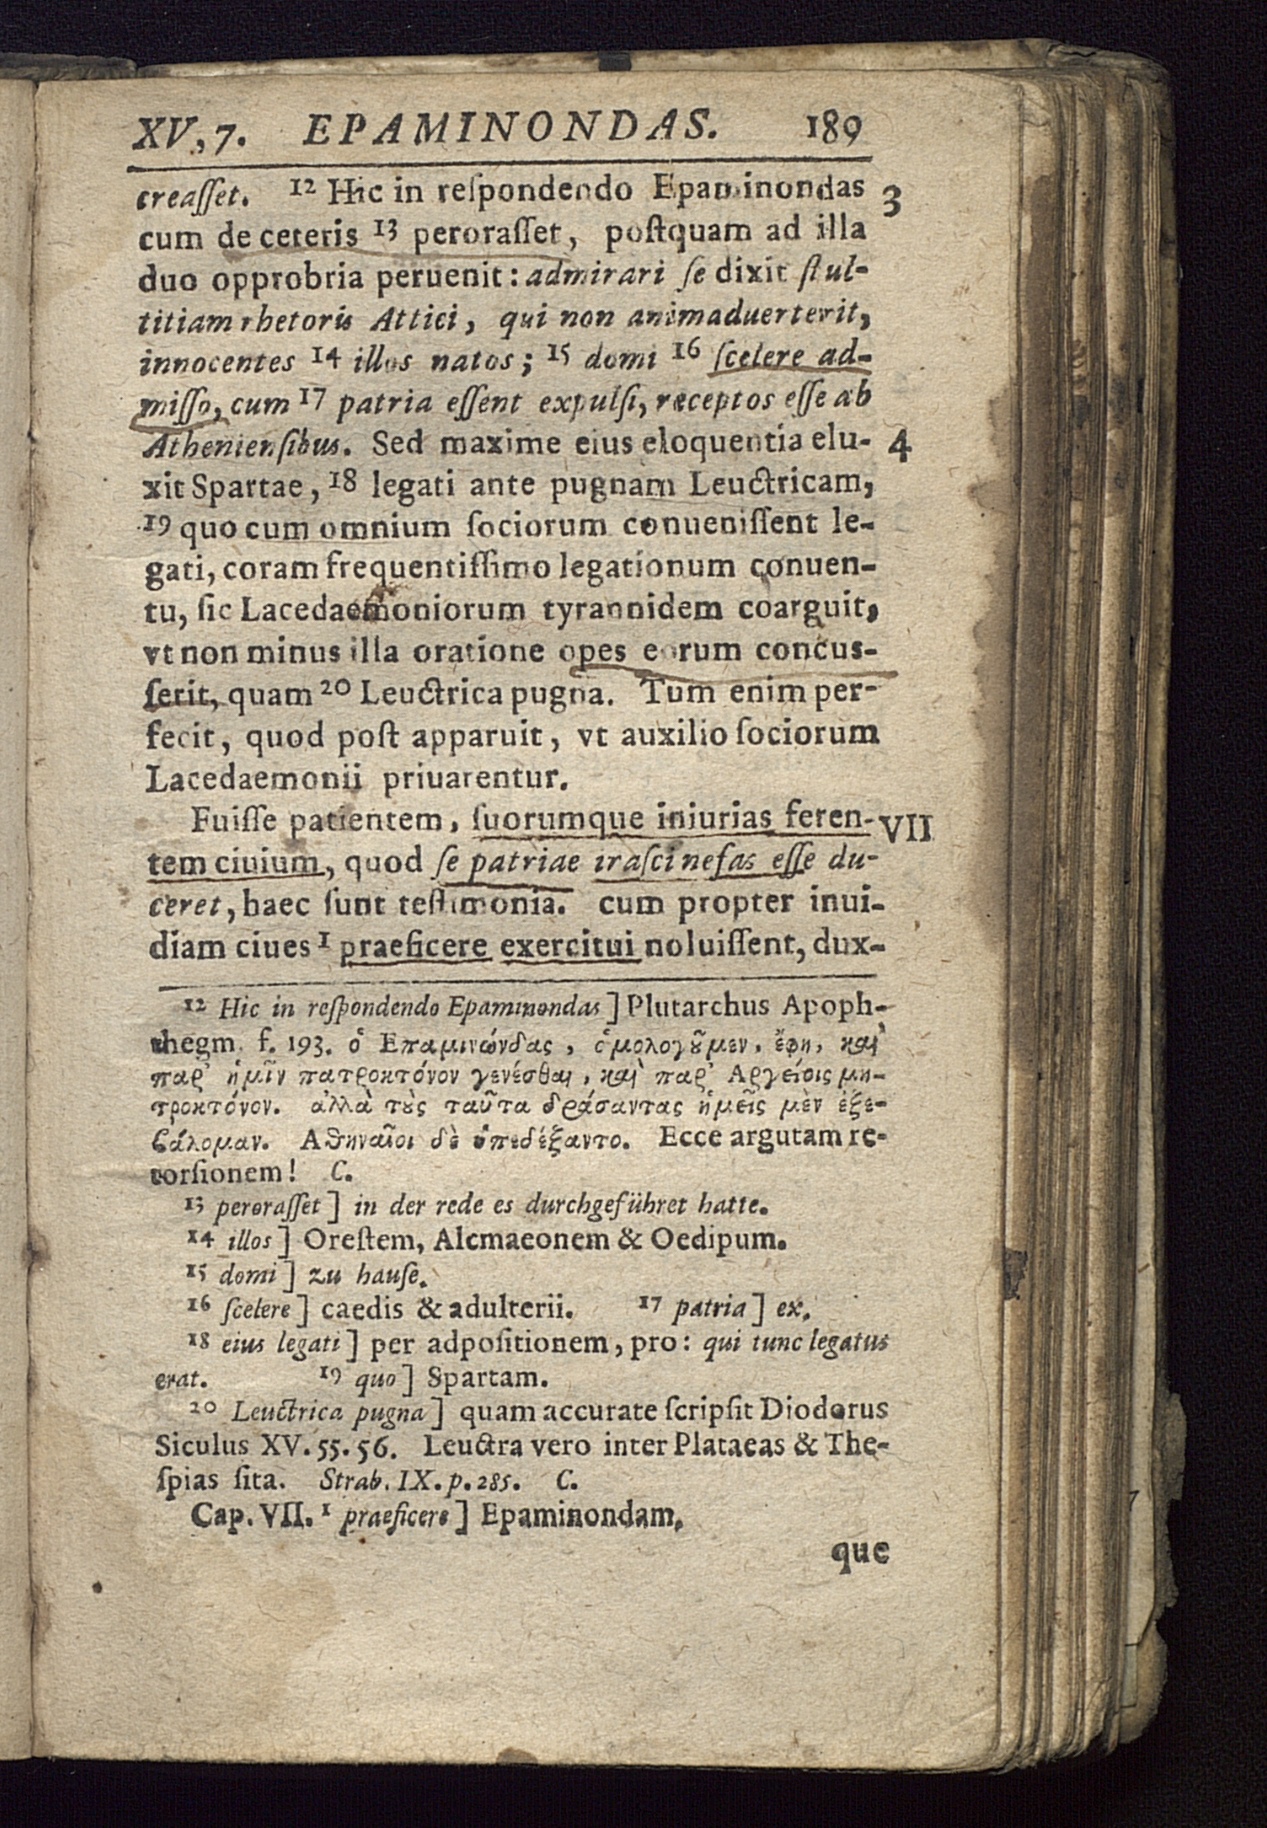 XV, 7. EPAMINONDAS. 189
creaſſet. 12 Hic in reſpondendo Epaminondas 3
cum de ceteris 13 peroraſſet, poſtquam ad illa
duo opprobria peruenit: admirari ſe dixit ſtul-
titiam rhetoris Attici, qui non animaduerterit,
innocentes 14 illos natos; 15 domi 16 ſcelere ad-
miſſo, cum 17 patria eſſent expulſi, receptos eſſe ab
Athenienſibus. Sed maxime eius eloquentia elu- 4
xit Spartae, 18 legati ante pugnam Leuctricam,
19 quo cum omnium ſociorum conueniſſent le-
gati, coram frequentiſſimo legationum conuen-
tu, ſic Lacedaemoniorum tyrannidem coarguit,
vt non minus illa oratione opes eorum concus-
ſerit, quam 20 Leuctrica pugna. Tum enim per-
fecit, quod poſt apparuit, vt auxilio ſociorum
Lacedaemonii priuarentur.
Fuiſſe patientem, ſuorumque iniurias feren- VII
tem ciuium, quod ſe patriae iraſci nefas eſſe du-
ceret, haec ſunt teſtimonia. cum propter inui-
diam ciues 1 praeficere exercitui noluiſſent, dux-
12 Hic in reſpondendo Epaminondas] Plutarchus Apoph-
thegm. f. 193. ὁ Επαμινώνδας, ὁμολογοῦμεν, ἔφη, καὶ
παρ' ἡμῖν πατροκτόνον γενέσθαι, καὶ παρ' Αργείοις μη-
τροκτόνον. ἀλλὰ τοὺς ταῦτα δράσαντας ἡμεῖς μὲν ἐξε-
βάλομαν. Αθηναῖοι δὲ ὑπεδέξαντο. Ecce argutam re-
torſionem! C.
13 peroraſſet] in der rede es durchgeführet hatte.
14 illos] Oreſtem, Alcmaeonem & Oedipum.
15 domi] zu hauſe.
16 ſcelere] caedis & adulterii. 17 patria] ex.
18 eius legati] per adpoſitionem, pro: qui tunc legatus
erat. 19 quo] Spartam.
20 Leuctrica pugna] quam accurate ſcripſit Diodorus
Siculus XV. 55. 56. Leuctra vero inter Plataeas & The-
ſpias ſita. Strab. IX. p. 285. C.
Cap. VII. 1 praeficere] Epaminondam.
que